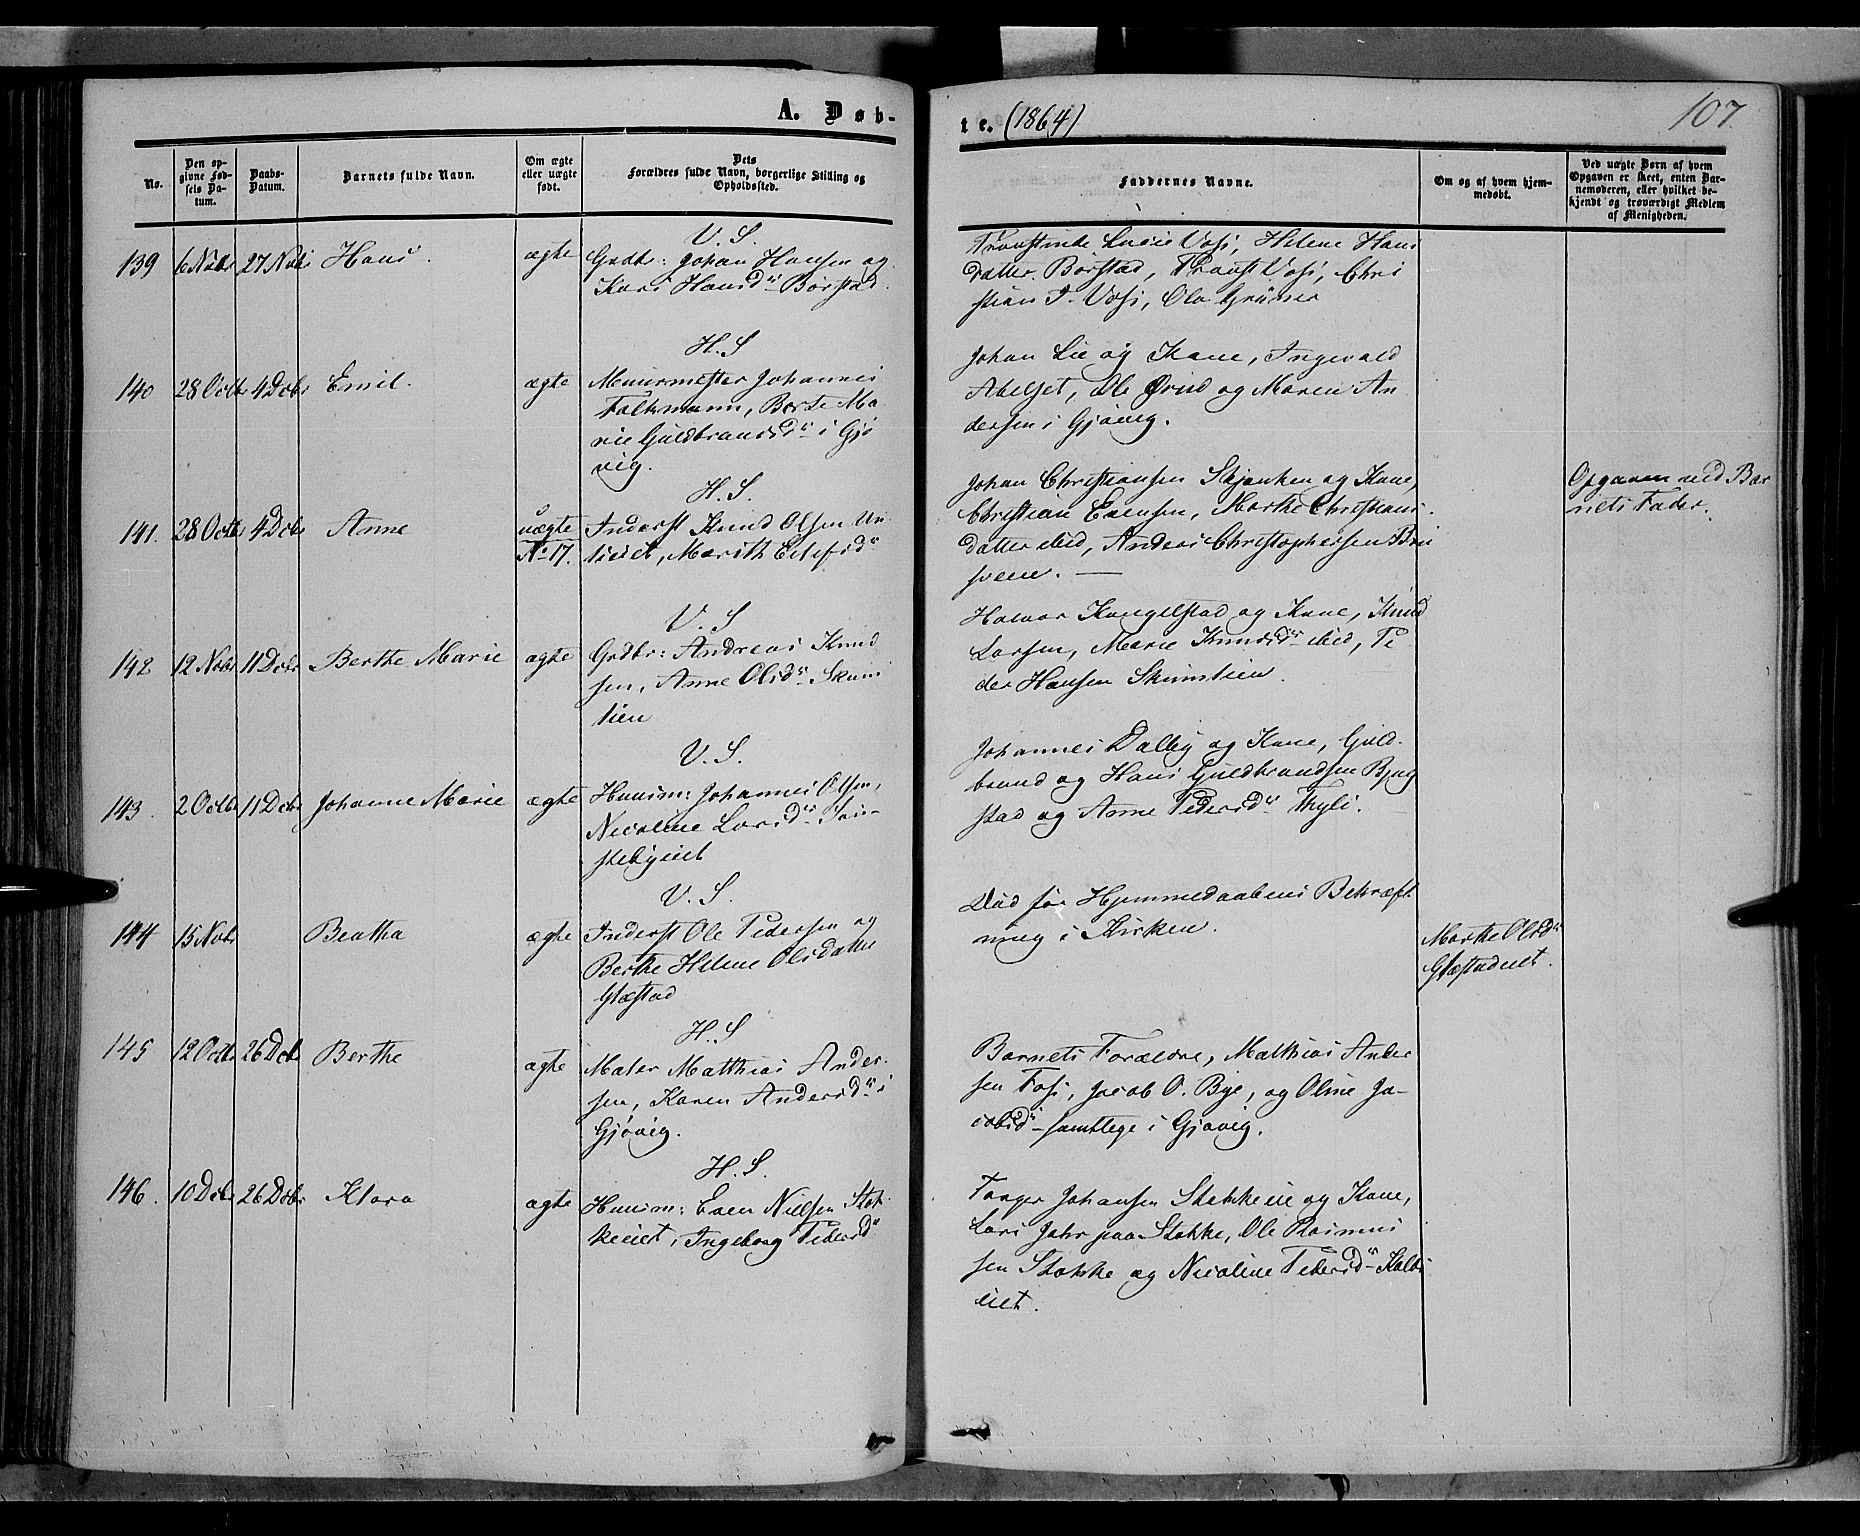 A. Døb-
te. (1864)
107.
No.
Den op-
givne Fød-
sels Da-
tum.
Daabs-
Datum.
Barnets fulde Navn.
Om ægte
eller uægte
født.
Dets
Forældres fulde Navn, borgerlige Stilling og
Opholdssted.
Faddernes Navne.
Om og af hvem hjem-
medøbt.
Ved uægte Børn af hvem
Opgaven er skeet, enten Bar-
nemoderen, eller hvilket be-
kjendt og troværdigt Medlem
af Menigheden.
V. S.
139 6 Nobr 27 Nobr Hans. ægte Grdbr: Johan Hansen og
Kari Hansdr Børstad.
Hans
datter Børstad,
H. S
140 28 Octbr 4 Dcbr Emil. ægte Muurmester Johannes
Falkmann, Berte Ma
rie Guldbrandsdr i Gjø
vig.
Johan Lie og Kone, Ingevald
Ole og Maren An
dersen i Gjøvig.
H. S.
141. 28 Octbr 4 Dcbr Anne uægte Inderst Knud Olsen
No 17.
Johan Christiansen og Kone,
Christian Evensen, Marthe Christians
datter ibid, Anders Christophersen
Opgaven ved Bar
nets Fader.
V. S
142 12 Nobr 11 Dcbr Berthe Marie ægte Grdbr: Andreas Knud
sen, Anne Olsdr Skum
lien
Kone, Knud
Larsen, Marie Knudsdr ibid, Pe
der Hansen Skumlien.
V. S.
143. 2 Octbr 11 Dcbr Johanne Marie ægte Huusm: Johannes Olsen,
Nicoline Larsdr
Johannes Dalby og Kone, Guld-
brand og Hans Guldbrandsen Bjug
stad og Anne Pedersdr
V. S.
144 15 Nobr Beatha ægte Inderst Ole Pedersen og
Berthe Helene Olsdatter
Glæstad
Død før Hjemmedaabens Bekræft
ning i Kirken.
Marthe Olsdr
Glæstadeiet.
H. S
145 12 Octbr 26 Dcbr Berthe ægte Maler Matthias Ander-
sen, Karen Andersdr i
Gjøvig.
Barnets Forældre, Mathias Ander
sen Foss, Jacob O. Bye, og Oline Ja-
cobsdr samtlege i Gjøvig.
H. S.
146. 10 Dcbr 26 Dcbr Klara ægte Huusm: Even Nielsen Stok-
keeiet, Ingeborg Pedersdr
Johansen Stokkeeie og Kone,
Lars paa Stokke, Ole Rasmus
sen Stokke og Nicoline Pedersdr
eiet.